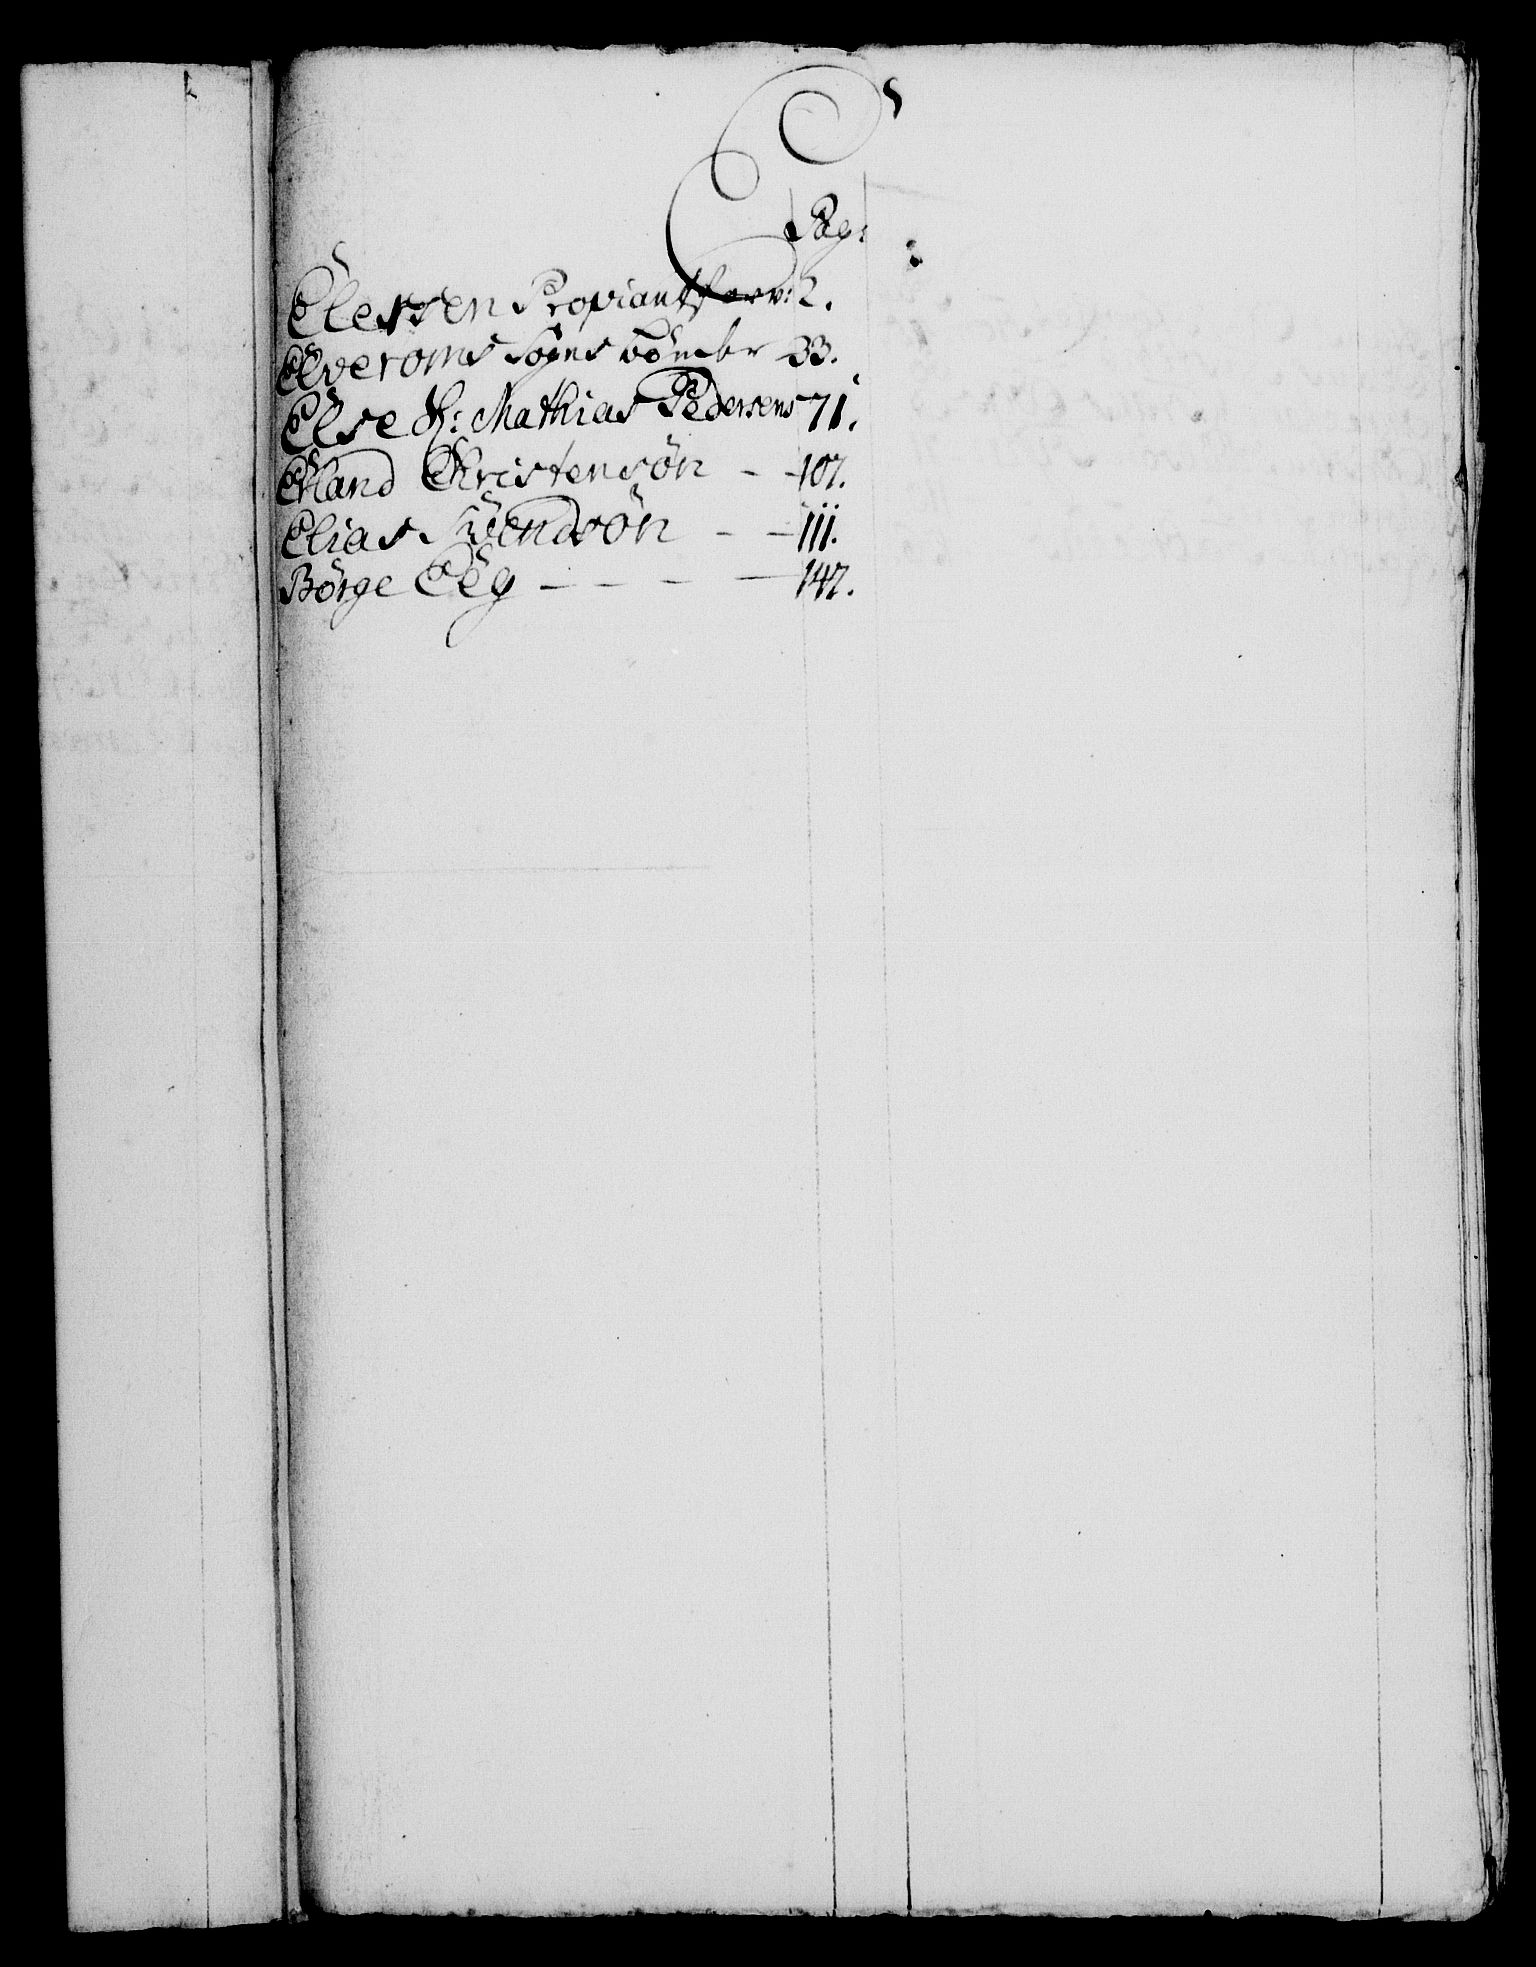 E
Pag:
Elersen Proviantforv: 2.
Elveroms Sogns bönder 33.
Else Sl: Mathias Pedersens 71.
Erland Christensön - - 107.
Elias Svendsön - - 111.
Börge Eeg - - - - 147.